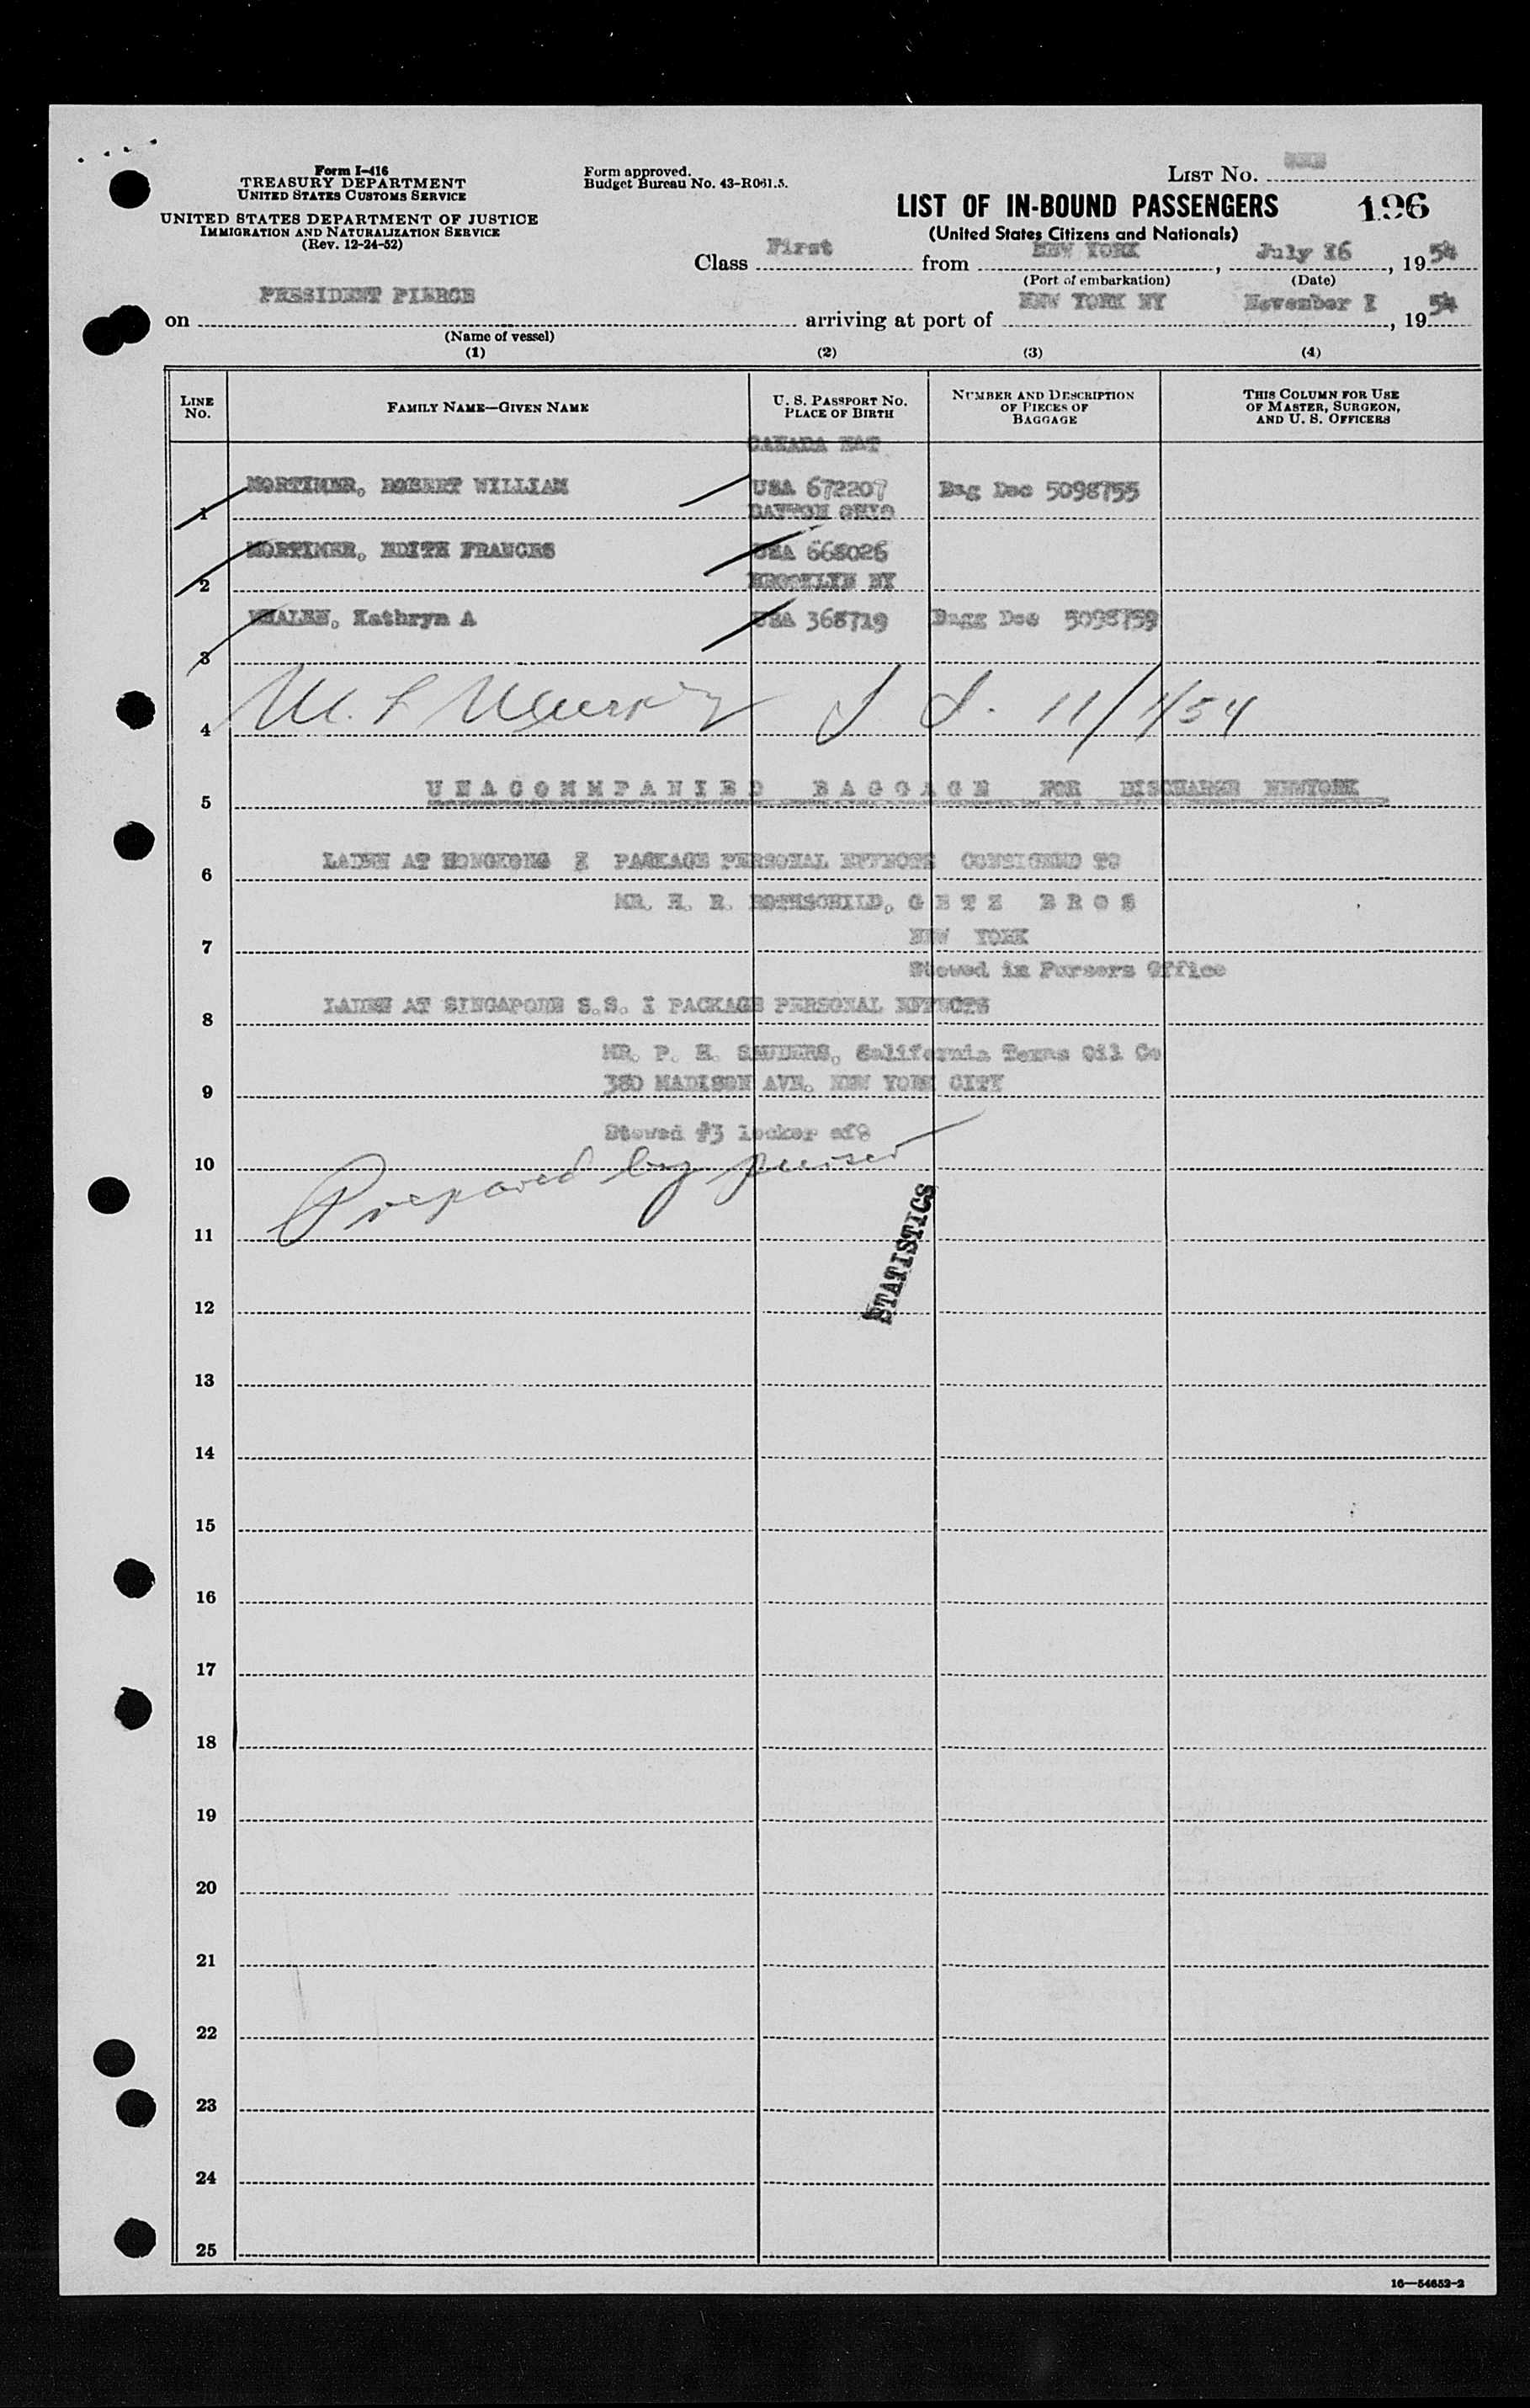 Form I-416
TREASURY DEPARTMENT
UNITED STATES CUSTOMS SERVICE
UNITED STATES DEPARTMENT OF JUSTICE
IMMIGRATION AND NATURALIZATION SERVICE
(Rev. 12-24-52)
Form approved.
Budget Bureau No. 43-R061.5.
LIST NO.
LIST OF IN-BOUND PASSENGERS 196
(United States Citizens and Nationals)
Class First from NEW YORK, July 16, 1954
(Port of embarkation) (Date)
on PRESIDENT PIERCE arriving at port of NEW YORK NY November I, 1954
(Name of vessel)
(1) (2) (3) (4)
LINE NO. FAMILY NAME—GIVEN NAME U. S. PASSPORT NO. PLACE OF BIRTH NUMBER AND DESCRIPTION OF PIECES OF BAGGAGE THIS COLUMN FOR USE OF MASTER, SURGEON, AND U. S. OFFICERS
CANADA NAT
1 MORTIMER, ROBERT WILLIAM USA 672207 Bag Dec 5098755
DAYTON OHIO
2 MORTIMER, EDITH FRANCES USA 668026
BROOKLYN NY
3 WHALEN, Kathryn A USA 368719 Bagg Dec 5098759
4 11/1/54
5 UNACOMMPANIED BAGGAGE FOR DISCHARGE NEWYORK
6 LADEN AT HONGKONG I PACKAGE PERSONAL EFFECTS CONSIGEND TO
MR. H. R. ROTHSCHILD, GETZ BROS
7 NEW YORK
Stowed in Pursers Office
8 LADEN AT SINGAPORE S.S. I PACKAGE PERSONAL EFFECTS
MR. P. H. SAUDERS, California Texas Oil Co
9 380 MADISON AVE. NEW YORK CITY
Stowed #3 locker aft
10 Prepared by purser
11
STATISTICS
12
13
14
15
16
17
18
19
20
21
22
23
24
25
16—54652-2